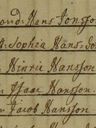 Hans Jonsson
Sophia Hans do
Hintric Hansson
Isaac Hansson
Jacob Hansson